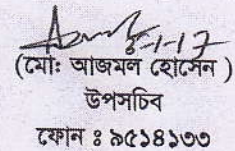 ৪-১-১৭
(মোঃ আজমল হোসেন )
উপসচিব
ফোন ঃ ৯৫১৪১৩৩